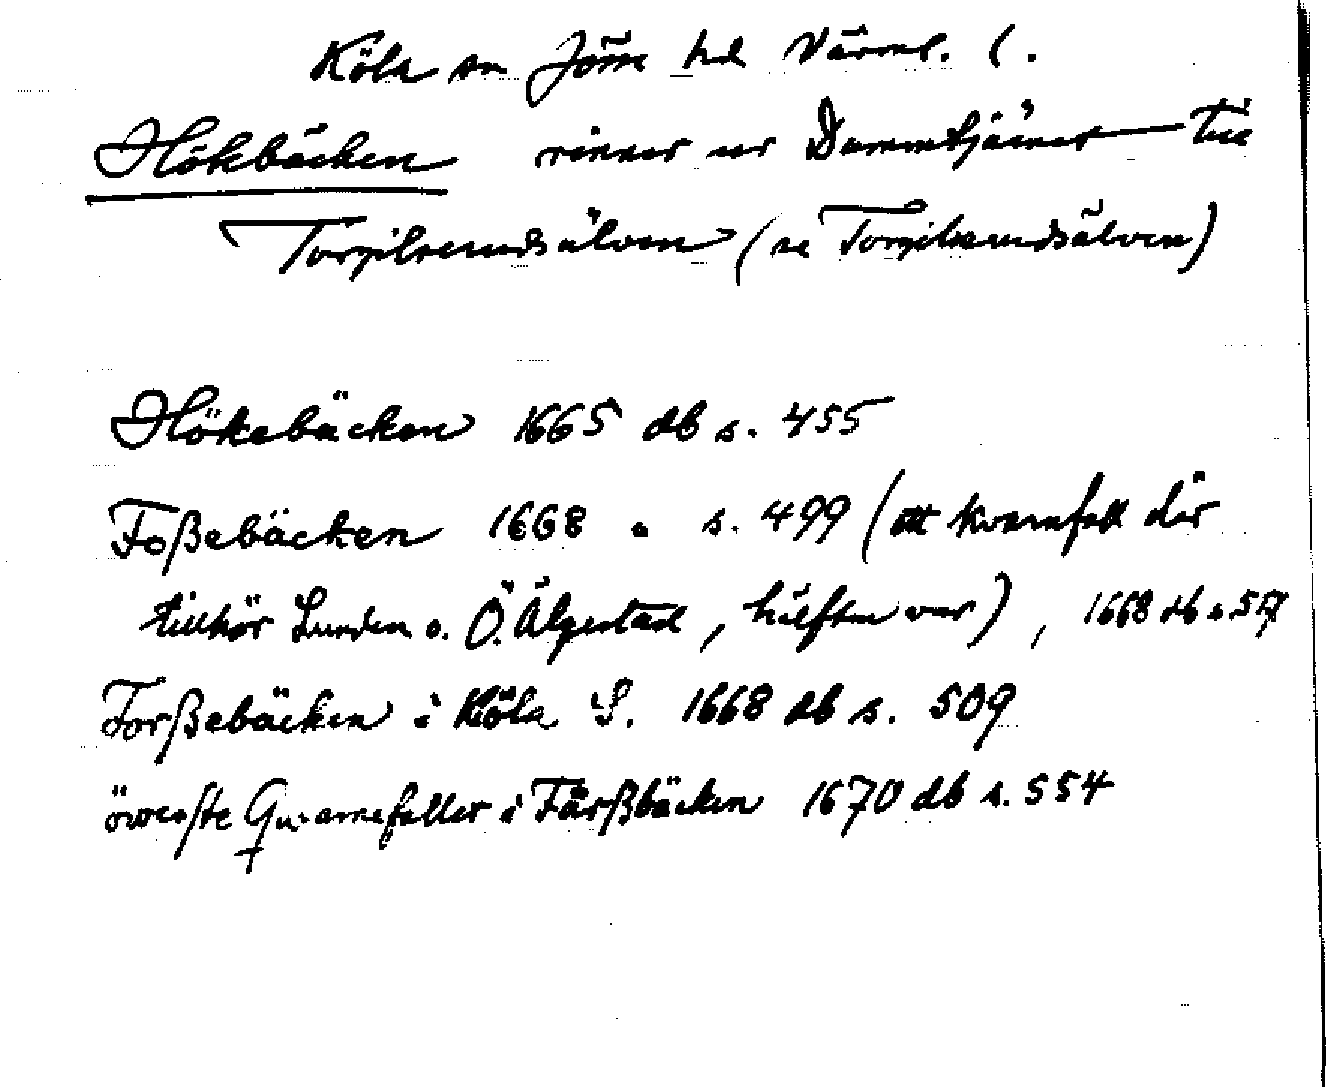 Köla sn Jösse hd Värml. l.
Hökbäcken rinner ur Dammtjärnet till
Torgilsrudsälven (se Torgilsrudsälven)
Hökebäcken 1665 db s. 455
Foßebäcken 1668 " s. 499 (ett kvarnfall där
tillhör Lunden o. Ö. Älgestad, hälften var), 1668 db s. 517
Forßebäcken i Köla S. 1668 db s. 509
öwerste Qwarnefallet i Färßbäcken 1670 db s. 554